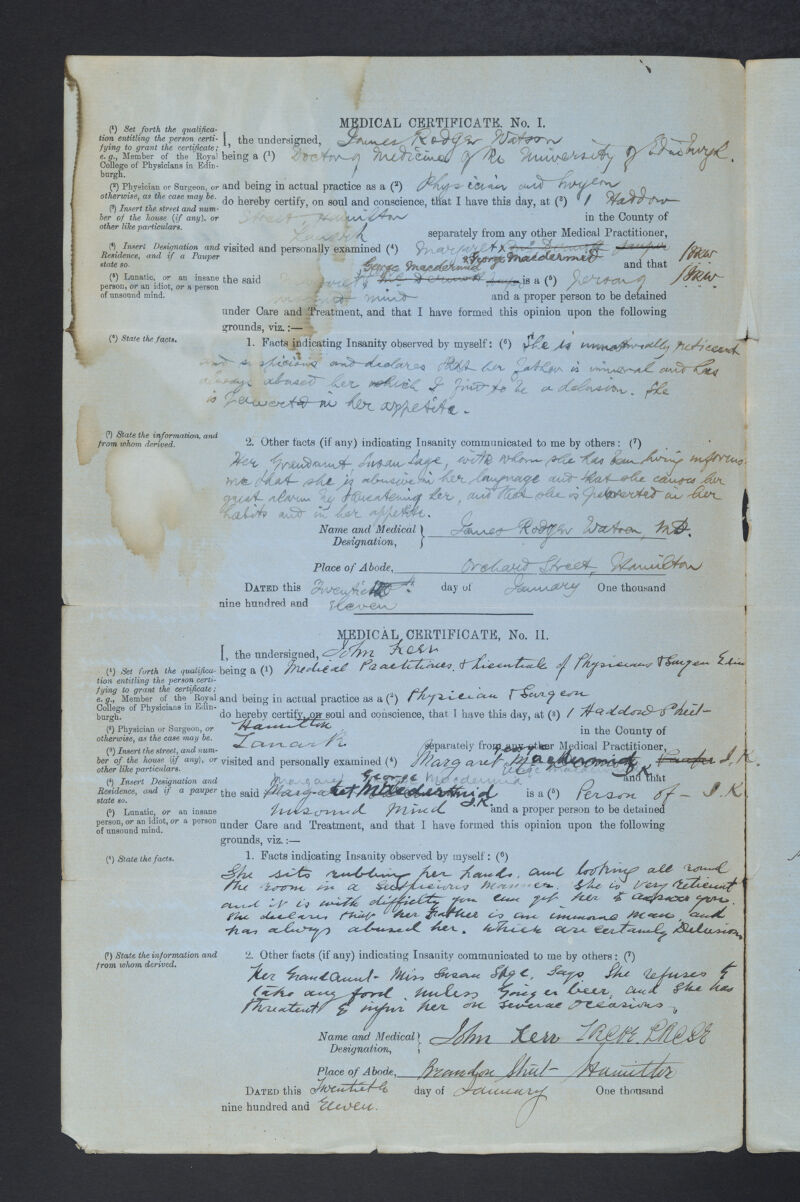 MEDICAL CERTIFICATE. No. I.
(¹) Set forth the qualifica-
tion entitling the person certi-
fying to grant the certificate;
e.g., Member of the Royal
College of Physicians in Edin-
burgh.
I, the undersigned, James Rodger Watson
being a (¹) Doctor of Medicine of the University of Edinburgh.
(²) Physician or Surgeon, or
otherwise, as the case may be.
and being in actual practice as a (²) Physician and Surgeon
(³) Insert the street and num-
ber of the house (if any), or
other like particulars.
do hereby certify, on soul and conscience, that I have this day, at (³) 1 Haddow
Street, Hamilton in the County of
Lanark separately from any other Medical Practitioner,
(⁴) Insert Designation and
Residence, and if a Pauper
state so.
visited and personally examined (⁴) Margaret
George Macdermid and that JRW
George Macdermid
(⁵) Lunatic, or an insane
person, or an idiot, or a person
of unsound mind.
the said Margaret is a (⁵) person of JRW.
unsound mind and a proper person to be detained
under Care and Treatment, and that I have formed this opinion upon the following
grounds, viz.:—
(⁶) State the facts.
1. Facts indicating Insanity observed by myself: (⁶) She is unnaturally reticent
and suspicious and declares that her father is immoral and has
always abused her which I find to be a delusion. She
is perverted in her appetite.
(⁷) State the information, and
from whom derived.
2. Other facts (if any) indicating Insanity communicated to me by others: (⁷)
Her Grandaunt, Susan Sage, with whom she has been living informs
me that she is abusive in her language and that she causes her
great alarm by threatening her, and that she is perverted in her
habits and in her appetite.
Name and Medical
Designation,
James Rodger Watson, M.D.
Place of Abode, Orchard Street, Hamilton
DATED this Twentieth day of January One thousand
nine hundred and eleven
MEDICAL CERTIFICATE, No. II.
I, the undersigned, John Kerr
(¹) Set forth the qualifica-
tion entitling the person certi-
fying to grant the certificate;
e.g., Member of the Royal
College of Physicians in Edin-
burgh.
being a (¹) Medical Practitioner & Licentiate of Physicians & Surgeon Edin
and being in actual practice as a (²) Physician & Surgeon
(²) Physician or Surgeon, or
otherwise, as the case may be.
do hereby certify, on soul and conscience, that I have this day, at (³) 1 Haddow Street
Hamilton in the County of
(³) Insert the street, and num-
ber of the house (if any), or
other like particulars.
Lanark separately from any other Medical Practitioner,
visited and personally examined (⁴) Margaret George Macdermid Pauper J.K.
(⁴) Insert Designation and
Residence, and if a pauper
state so.
Margaret George Macdermid and that
the said Margaret Macdermid is a (⁵) Person of – J.K.
(⁵) Lunatic, or an insane
person, or an idiot, or a person
of unsound mind.
unsound mind J.K. and a proper person to be detained
under Care and Treatment, and that I have formed this opinion upon the following
grounds, viz.:—
(⁶) State the facts.
1. Facts indicating Insanity observed by myself: (⁶)
She sits rubbing her hands, and looking all round
the room in a suspicious manner. She is very reticent
and it is with difficulty you can get her to answer you.
She declares that her Father is an immoral man, and
has always abused her. which are certainly Delusions
(⁷) State the information and
from whom derived.
2. Other facts (if any) indicating Insanity communicated to me by others: (⁷)
Her Grand Aunt – Miss Susan Sage, says, She refuses to
take any food, unless Ginger beer, and she has
threatent to injur her on several occasions.
Name and Medical
Designation,
John Kerr LRCPE. LRCSE
Place of Abode, Brandon Street – Hamilton
DATED this Twentieth day of January One thousand
nine hundred and Eleven.